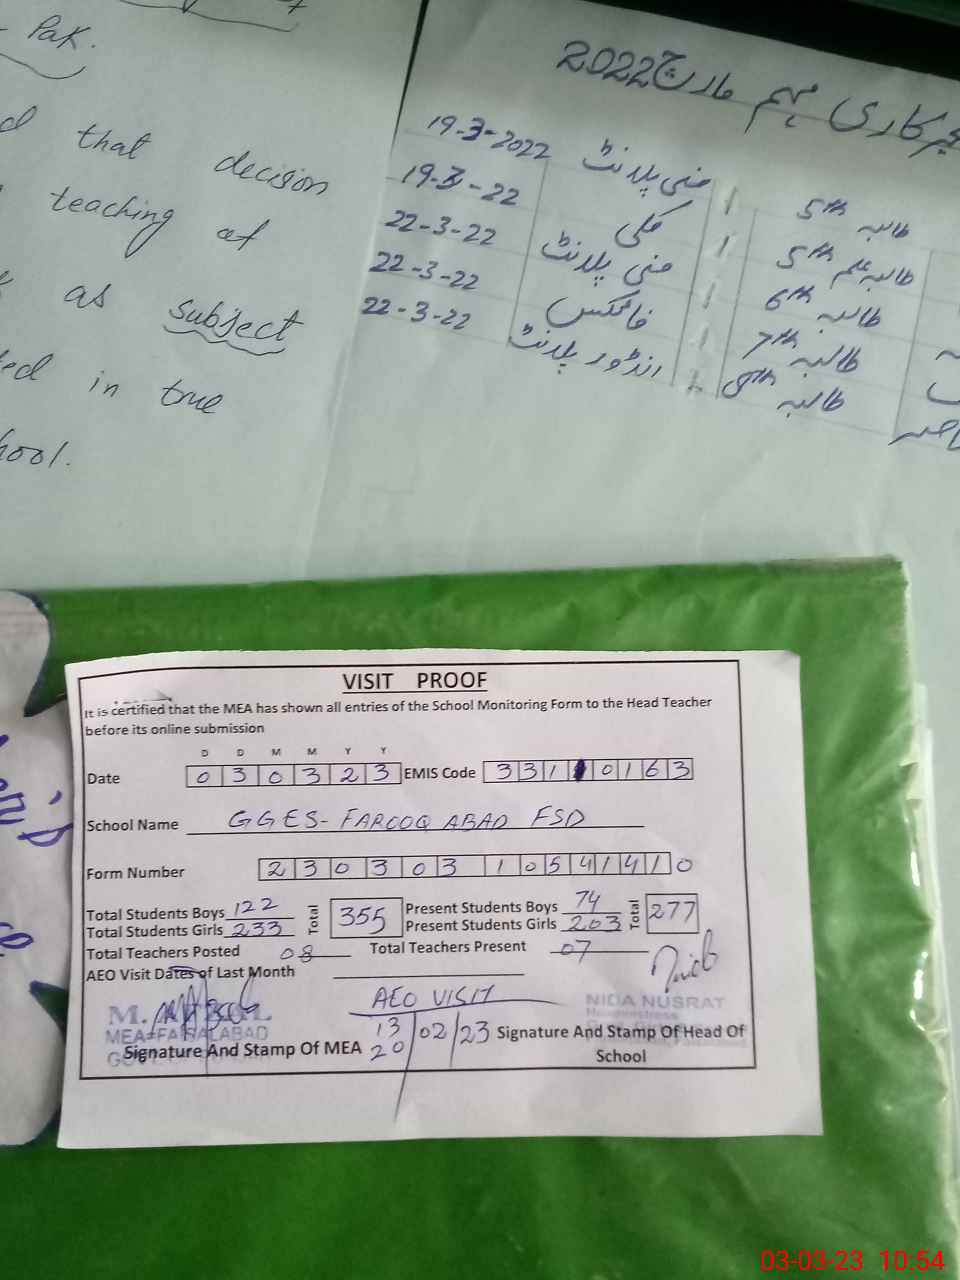 Pak.
that decision
teaching at
as subject
in true
مارچ 2022
19-3-2022 منی پلانٹ 1 5th طالبہ
19-3-22 مکی 1 5th طالب علم
22-3-22 منی پلانٹ 1 6th طالبہ
22-3-22 فائکس 1 7th طالبہ
22-3-22 انڈور پلانٹ 1 8th طالبہ
VISIT PROOF
It is certified that the MEA has shown all entries of the School Monitoring Form to the Head Teacher
before its online submission
D D M M Y Y
Date 0 3 0 3 2 3 EMIS Code 3 3 1 1 0 1 6 3
School Name GGES- FAROOQ ABAD FSD
Form Number 2 3 0 3 0 3 1 0 5 4 1 4 1 0
Total Students Boys 122 Total 355 Present Students Boys 74 Total 277
Total Students Girls 233 Present Students Girls 203
Total Teachers Posted 08 Total Teachers Present 07
AEO Visit Dates of Last Month
AEO VISIT
13/02/23
20
NIDA NUSRAT
Headmistress
MEA-FAISALABAD
Signature And Stamp Of MEA
Signature And Stamp Of Head Of
School
03-03-23 10:54